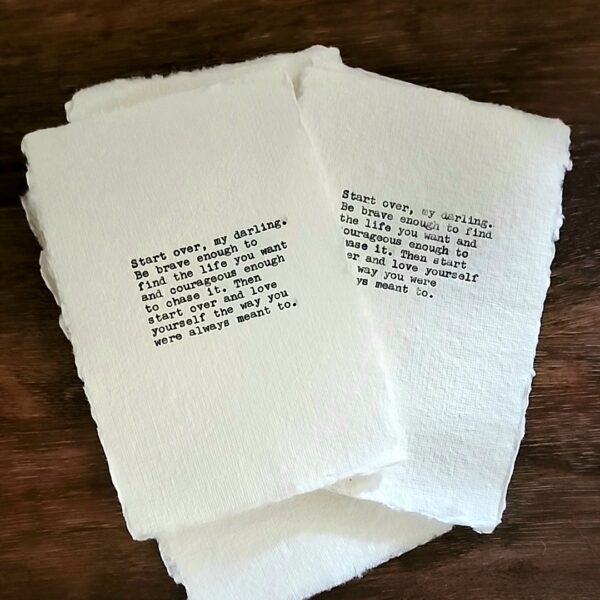 Start over, my darling.
Be brave enough to
find the life you want
and courageous enough
to chase it. Then
start over and love
yourself the way you
were always meant to.
Start over, my darling.
Be brave enough to find
the life you want and
courageous enough to
hase it. Then start
er and love yourself
way you were
ys meant to.